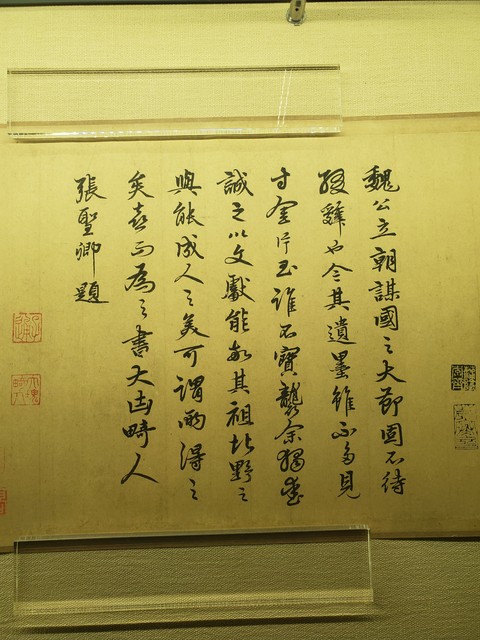 魏公立朝謀國之大節固不待
綴辭也今其遺墨雖不多見
寸金片玉誰不寶襲余獨愛
誠之以文獻能敬其祖北野之
與能成人之美可謂兩得之
矣喜而為之書大凷畸人
張聖卿題